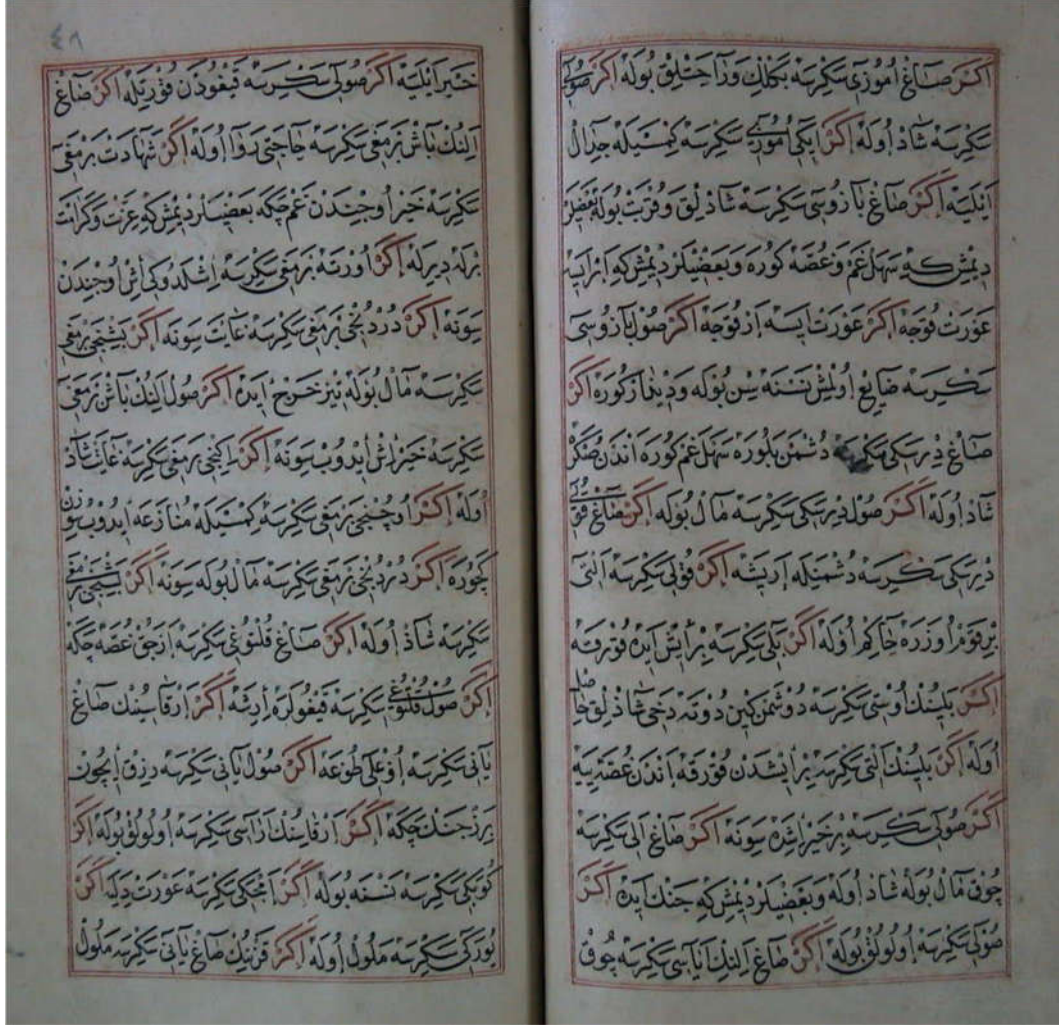 اكر صاغ اموزى سكرسه بكلك و راحتلق بوله اكر صولى
سكرسه شاد اوله اكر ايكى اموزى سكرسه كمسيله جدال
ايليه اكر صاغ بازوسى سكرسه شاذلق و قربت بوله بعضيلر
ديمش كه سهل غم و غصه كوره و بعضيلر ديمش كه ار ايسه
عورت قوجه اكر عورت ايسه ار قوجه اكر صول بازوسى
سكرسه ضايع اولمش نسنه سن بوله و ديدار كوره اكر
صاغ درسكى سكرسه دشمن بلوره سهل غم كوره اندن صكره
شاد اوله اكر صول درسكى سكرسه مال بوله اكر صاغ قولى
درسكى سكرسه دشمنله اريشه اكر قولى سكرسه التى
بر قوم اوزره حاكم اوله اكر بلى سكرسه بر ايش ايده قورقه
اكر بلينك اوستى سكرسه دوشمن كبين دونه دخى شاذلق حاصل
اوله اكر بلينك التى سكرسه بر ايشدن قورقه اندن غصه ييه
اكر صولى سكرسه بر خير ايشده سونه اكر صاغ الى سكرسه
چوق مال بوله شاد اوله و بعضيلر ديمش كه جنك ايده اكر
صولى سكرسه اولولق بوله اكر صاغ النك اياسى سكرسه چوق
٤٨
خير ايليه اكر صولى سكرسه قيغودن قورتيله اكر صاغ
النك باش برمغى سكرسه حاجتى روا اوله اكر شهادت برمغى
سكرسه خير اوجندن غم چكه بعضيلر ديمش كه عزت و كرامت
برله ديريله اكر اورته برمغى سكرسه اشلدوكى ايش اوجندن
سونه اكر دردنجى برمغى سكرسه غايت سونه اكر بشنجى برمغى
سكرسه مال بوله تيز خرج ايده اكر صول النك باش برمغى
سكرسه خير ايش ايدوب سونه اكر ايكنجى برمغى سكرسه غايت شاد
اوله اكر اوچنجى برمغى سكرسه كمسيله منازعه ايدوب سوزن
كچوره اكر دردنجى برمغى سكرسه مال بوله سونه اكر بشنجى برمغى
سكرسه شاد اوله اكر صاغ قلتوغى سكرسه ازجق غصه چكه
اكر صول قلتوغى سكرسه قيغولره ايرشه اكر ارقاسينك صاغ
يانى سكرسه اوغلى طوغه اكر صول يانى سكرسه رزق ايچون
بر زحمت چكه اكر ارقاسينك اراسى سكرسه اولولق بوله اكر
كوبكى سكرسه نسنه بوله اكر امجكى سكرسه عورت ديله اكر
يوركى سكرسه ملول اوله اكر قرنينك صاغ يانى سكرسه ملول